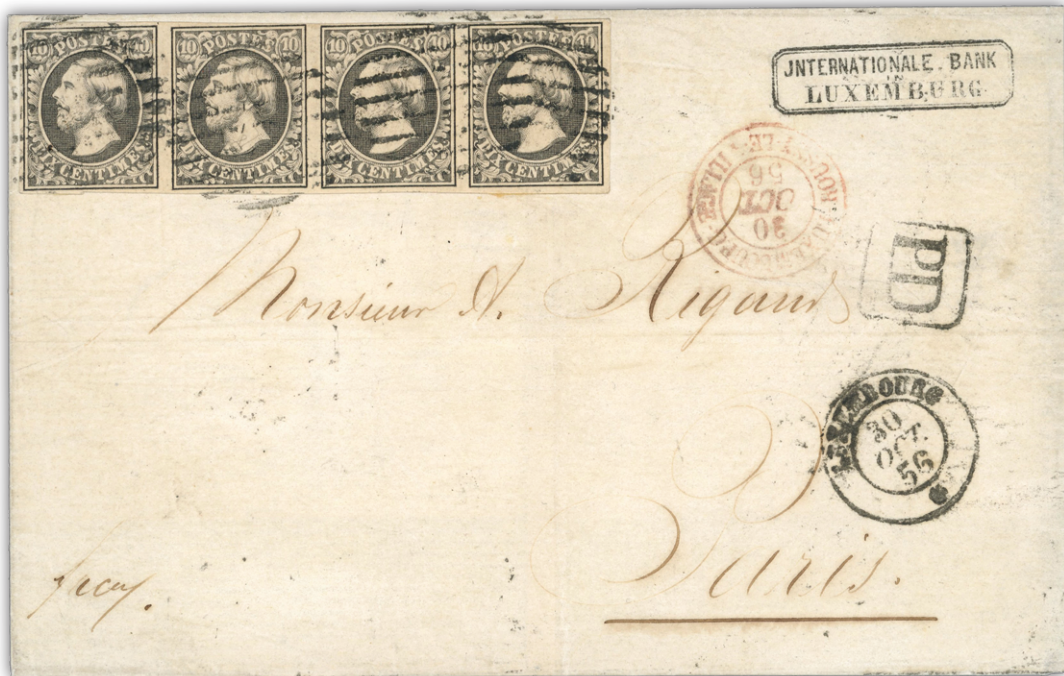 10 POSTES 10
DIX CENTIMES
10 POSTES 10
DIX CENTIMES
10 POSTES 10
DIX CENTIMES
10 POSTES 10
DIX CENTIMES
JNTERNATIONALE. BANK
IN
LUXEMBURG.
30
OCT.
56
PD
Monsieur A. Rigaud
LUXEMBOURG
30
OCT
56
Paris.